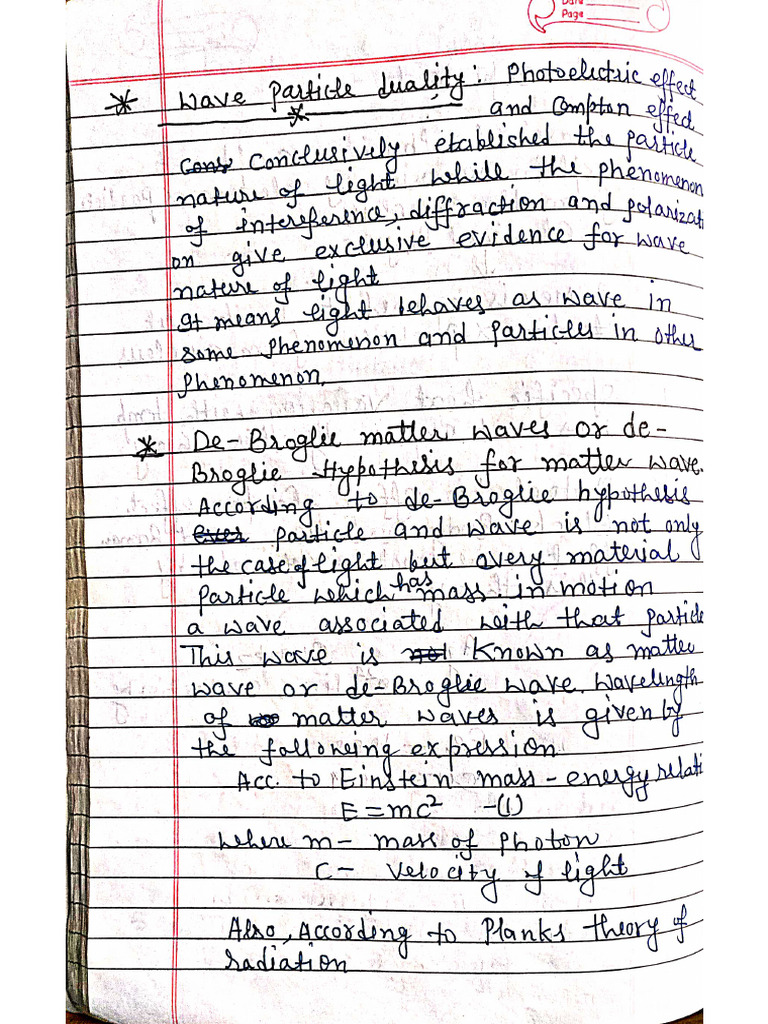 Date
Page
* Wave Particle duality: Photoelectric effect
and Compton effect
Cons Conclusively etablished the particle
nature of light while the phenomenon
of intereference, diffraction and polarizati
on give exclusive evidence for wave
nature of light
It means light behaves as wave in
some phenomenon and particles in other
phenomenon.
* De-Broglie matter waves or de-
Broglie Hypothesis for matter wave.
According to de-Broglie hypothesis
ever particle and wave is not only
the case of light but every material
particle which has mass in motion
a wave associated with that particle
This wave is not known as matter
wave or de-Broglie wave. Wavelength
of matter waves is given by
the following expression
Acc. to Einstein mass-energy relati
E=mc² -(1)
where m- mass of photon
C- velocity of light
Also, According to Planks theory of
radiation